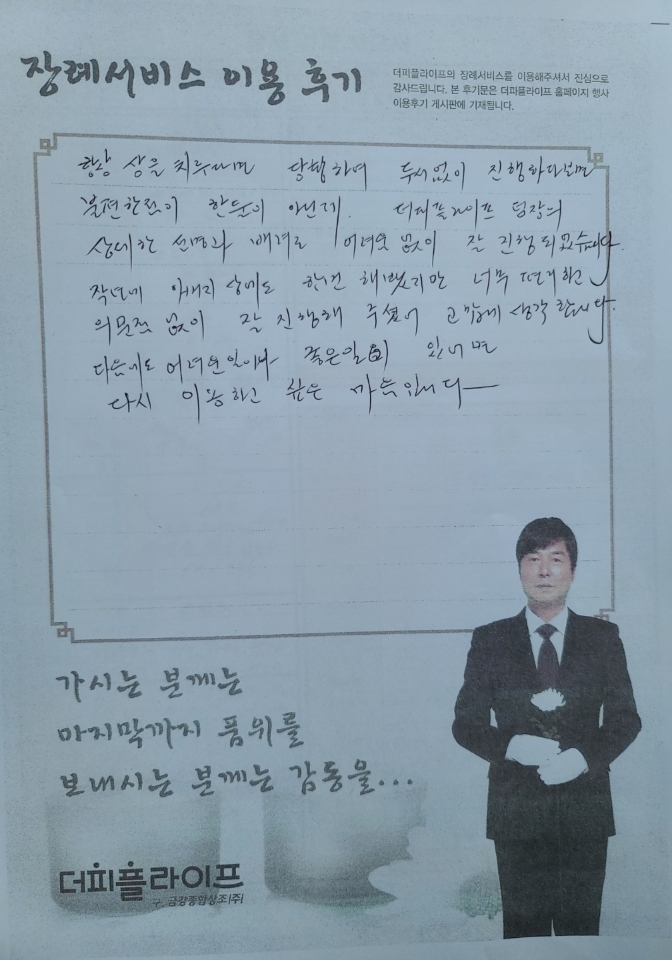 장례서비스 이용 후기
더피플라이프의 장례서비스를 이용해주셔서 진심으로
감사드립니다. 본 후기문은 더피플라이프 홈페이지 행사
이용후기 게시판에 기재됩니다.
항상 상을 치루다보면 당황하며 두서없이 진행하다보면
불편한점이 한둘이 아닌데. 더피플라이프 팀장의
상세한 설명과 배려로 어려움 없이 잘 진행되었습니다.
작년에 아버지 상에도 한번 해봤지만 너무
의문점 없이 잘 진행해 주셨어 고맙게 생각합니다.
다음에도 어려운일이나 좋은일 있으면
다시 이용하고 싶은 마음입니다
가시는 분께는
마지막까지 품위를
보내시는 분께는 감동을...
더피플라이프
구. 금강종합상조(주)